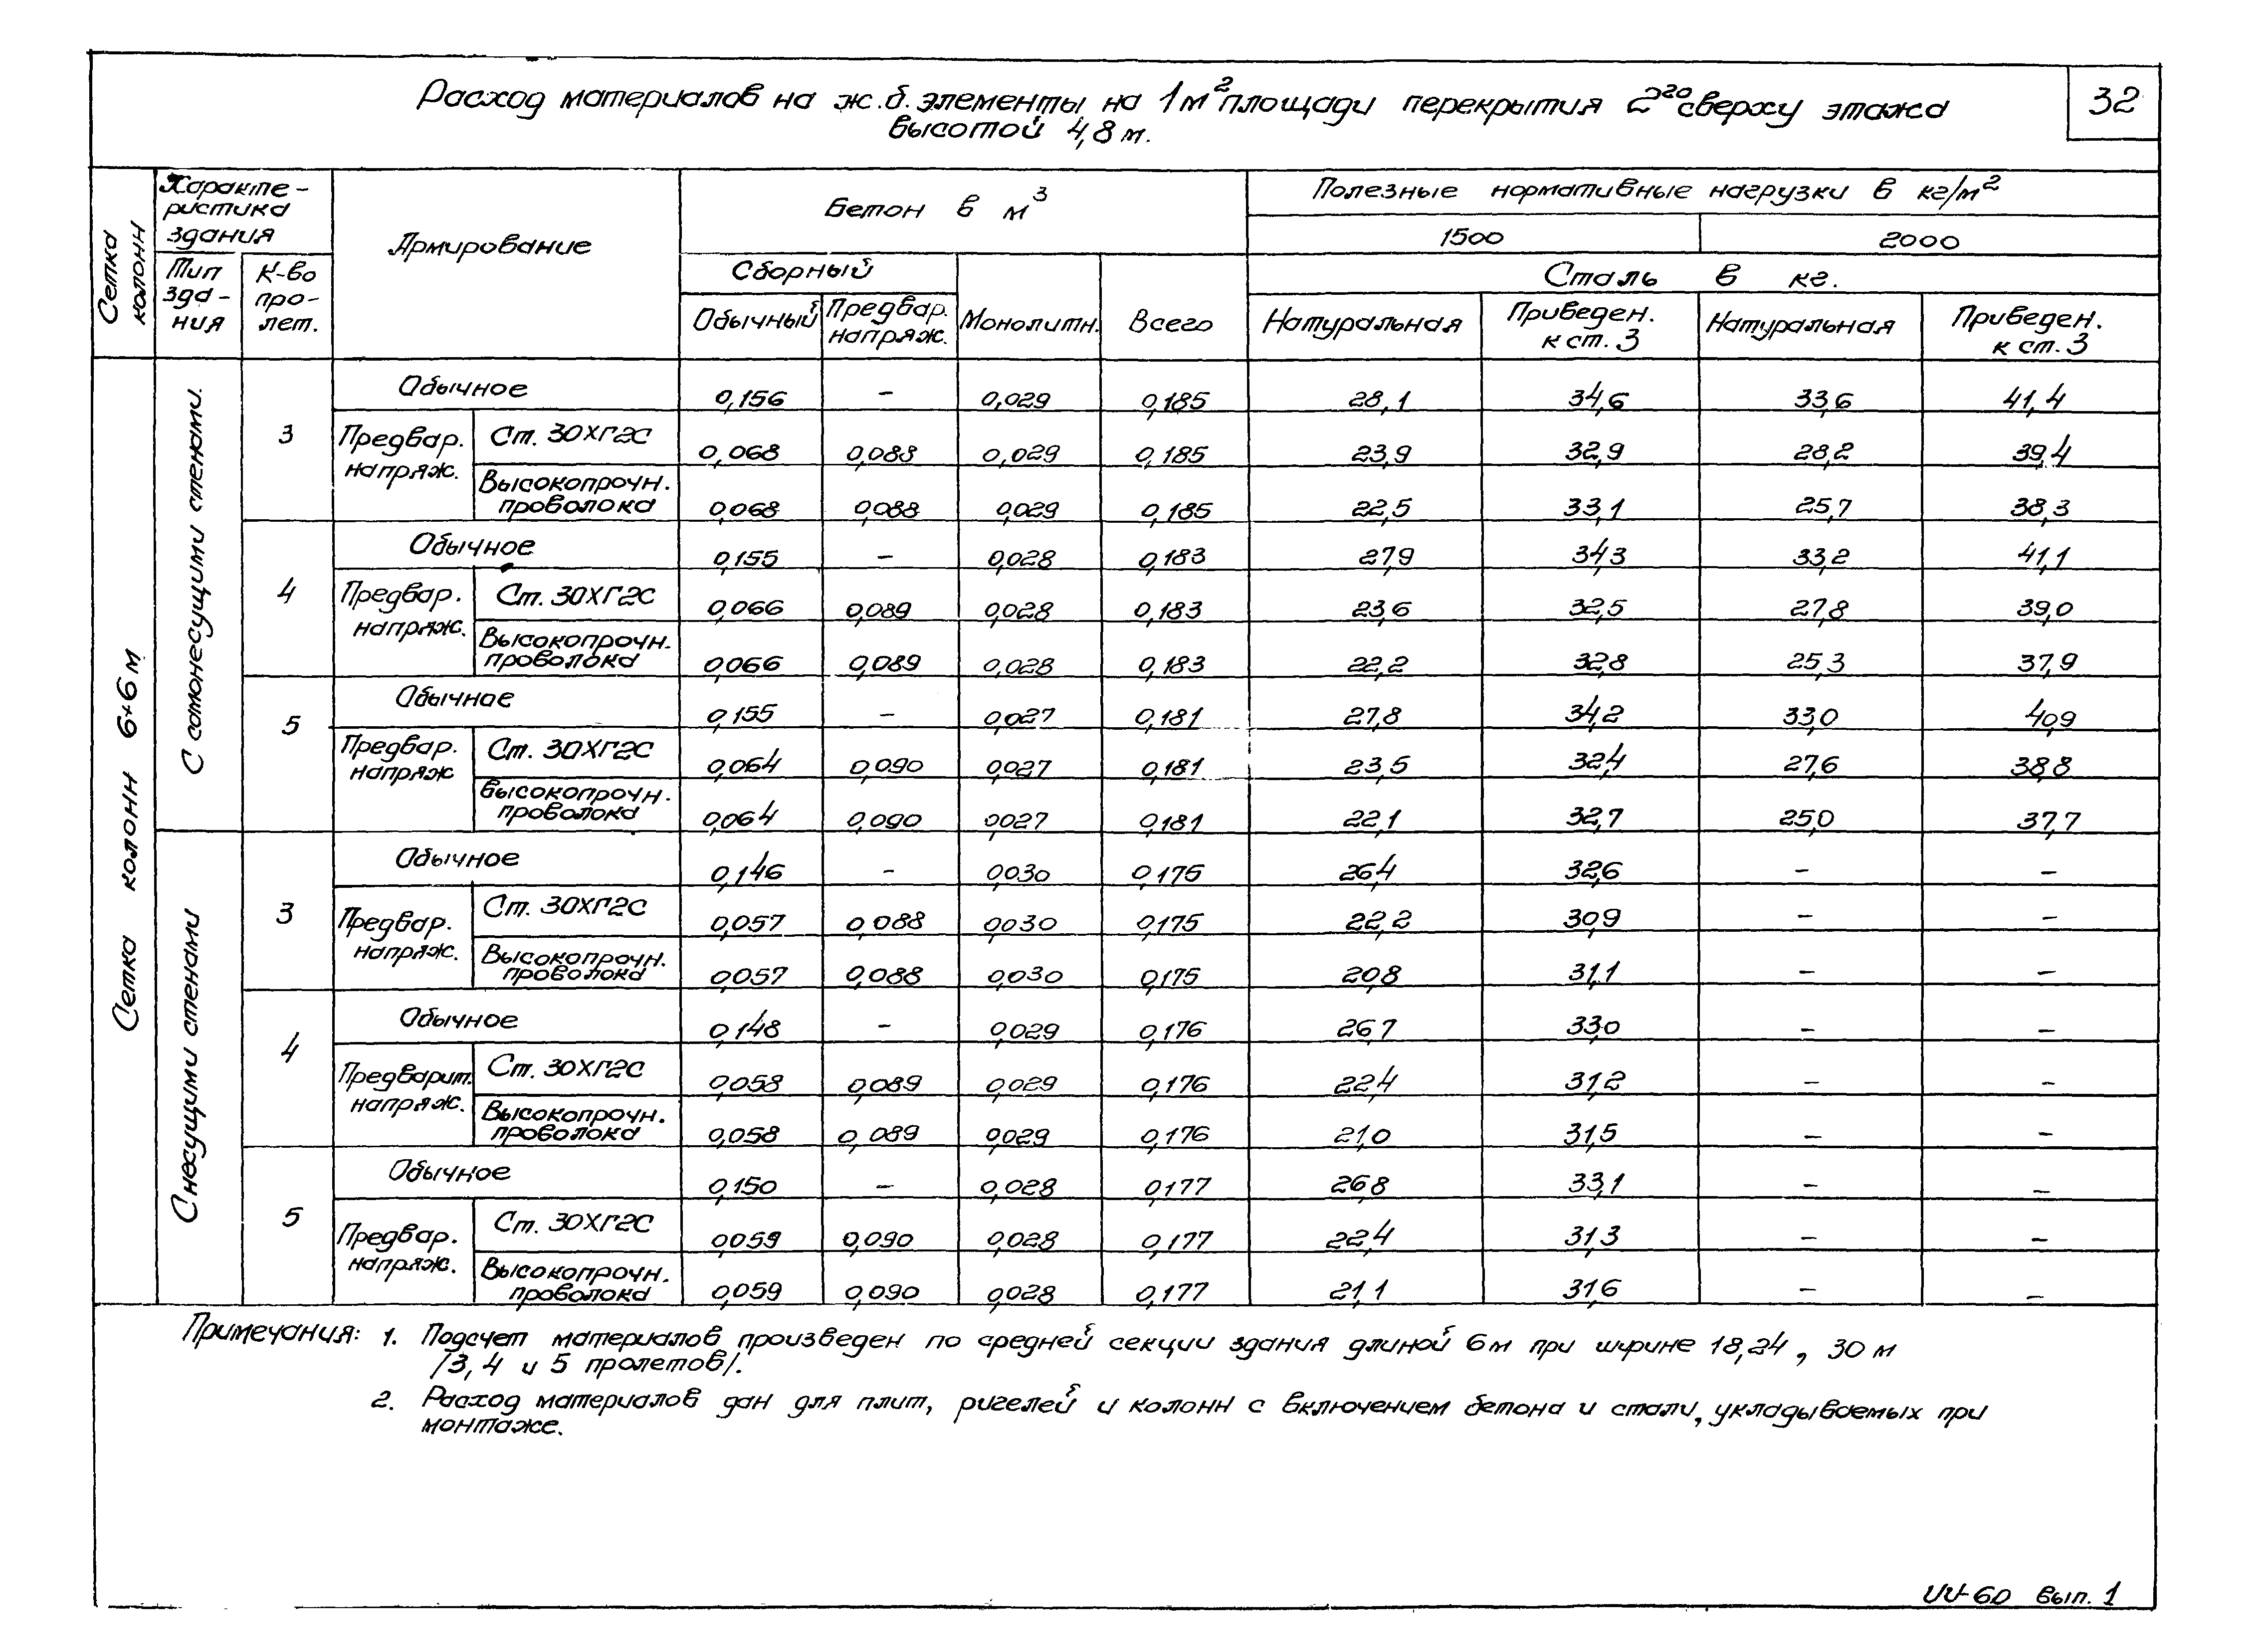 Расход материалов на ж.б. элементы на 1м² площади перекрытия 2го сверху этажа
высотой 4,8 м.
32
Сетка колонн
Характе-
ристика
здания
Тип
зда-
ния
К-во
про-
лет.
Армирование
Бетон в м³
Сборный
Обычный
Предвар.
напряж.
Монолитн.
Всего
Полезные нормативные нагрузки в кг/м²
1500 2000
Сталь в кг.
Натуральная
Приведен.
к ст. 3
Натуральная
Приведен.
к ст. 3
Сетка колонн 6×6 м
С самонесущими стенами.
3
Обычное 0,156 – 0,029 0,185 28,1 34,6 33,6 41,4
Предвар.
напряж.
Ст. 30ХГ2С 0,068 0,088 0,029 0,185 23,9 32,9 28,2 39,4
Высокопрочн.
проволока 0,068 0,088 0,029 0,185 22,5 33,1 25,7 38,3
4
Обычное 0,155 – 0,028 0,183 27,9 34,3 33,2 41,1
Предвар.
напряж.
Ст. 30ХГ2С 0,066 0,089 0,028 0,183 23,6 32,5 27,8 39,0
Высокопрочн.
проволока 0,066 0,089 0,028 0,183 22,2 32,8 25,3 37,9
5
Обычное 0,155 – 0,027 0,181 27,8 34,2 33,0 40,9
Предвар.
напряж
Ст. 30ХГ2С 0,064 0,090 0,027 0,181 23,5 32,4 27,6 38,8
Высокопрочн.
проволока 0,064 0,090 0,027 0,181 22,1 32,7 25,0 37,7
С несущими стенами
3
Обычное 0,146 – 0,030 0,175 26,4 32,6 – –
Предвар.
напряж.
Ст. 30ХГ2С 0,057 0,088 0,030 0,175 22,2 30,9 – –
Высокопрочн.
проволока 0,057 0,088 0,030 0,175 20,8 31,1 – –
4
Обычное 0,148 – 0,029 0,176 26,7 33,0 – –
Предварит.
напряж.
Ст. 30ХГ2С 0,058 0,089 0,029 0,176 22,4 31,2 – –
Высокопрочн.
проволока 0,058 0,089 0,029 0,176 21,0 31,5 – –
5
Обычное 0,150 – 0,028 0,177 26,8 33,1 – –
Предвар.
напряж.
Ст. 30ХГ2С 0,059 0,090 0,028 0,177 22,4 31,3 – –
Высокопрочн.
проволока 0,059 0,090 0,028 0,177 21,1 31,6 – –
Примечания: 1. Подсчет материалов произведен по средней секции здания длиной 6м при ширине 18,24, 30 м
/3, 4 и 5 пролетов/.
2. Расход материалов дан для плит, ригелей и колонн с включением бетона и стали, укладываемых при
монтаже.
ИИ-60 вып. 1